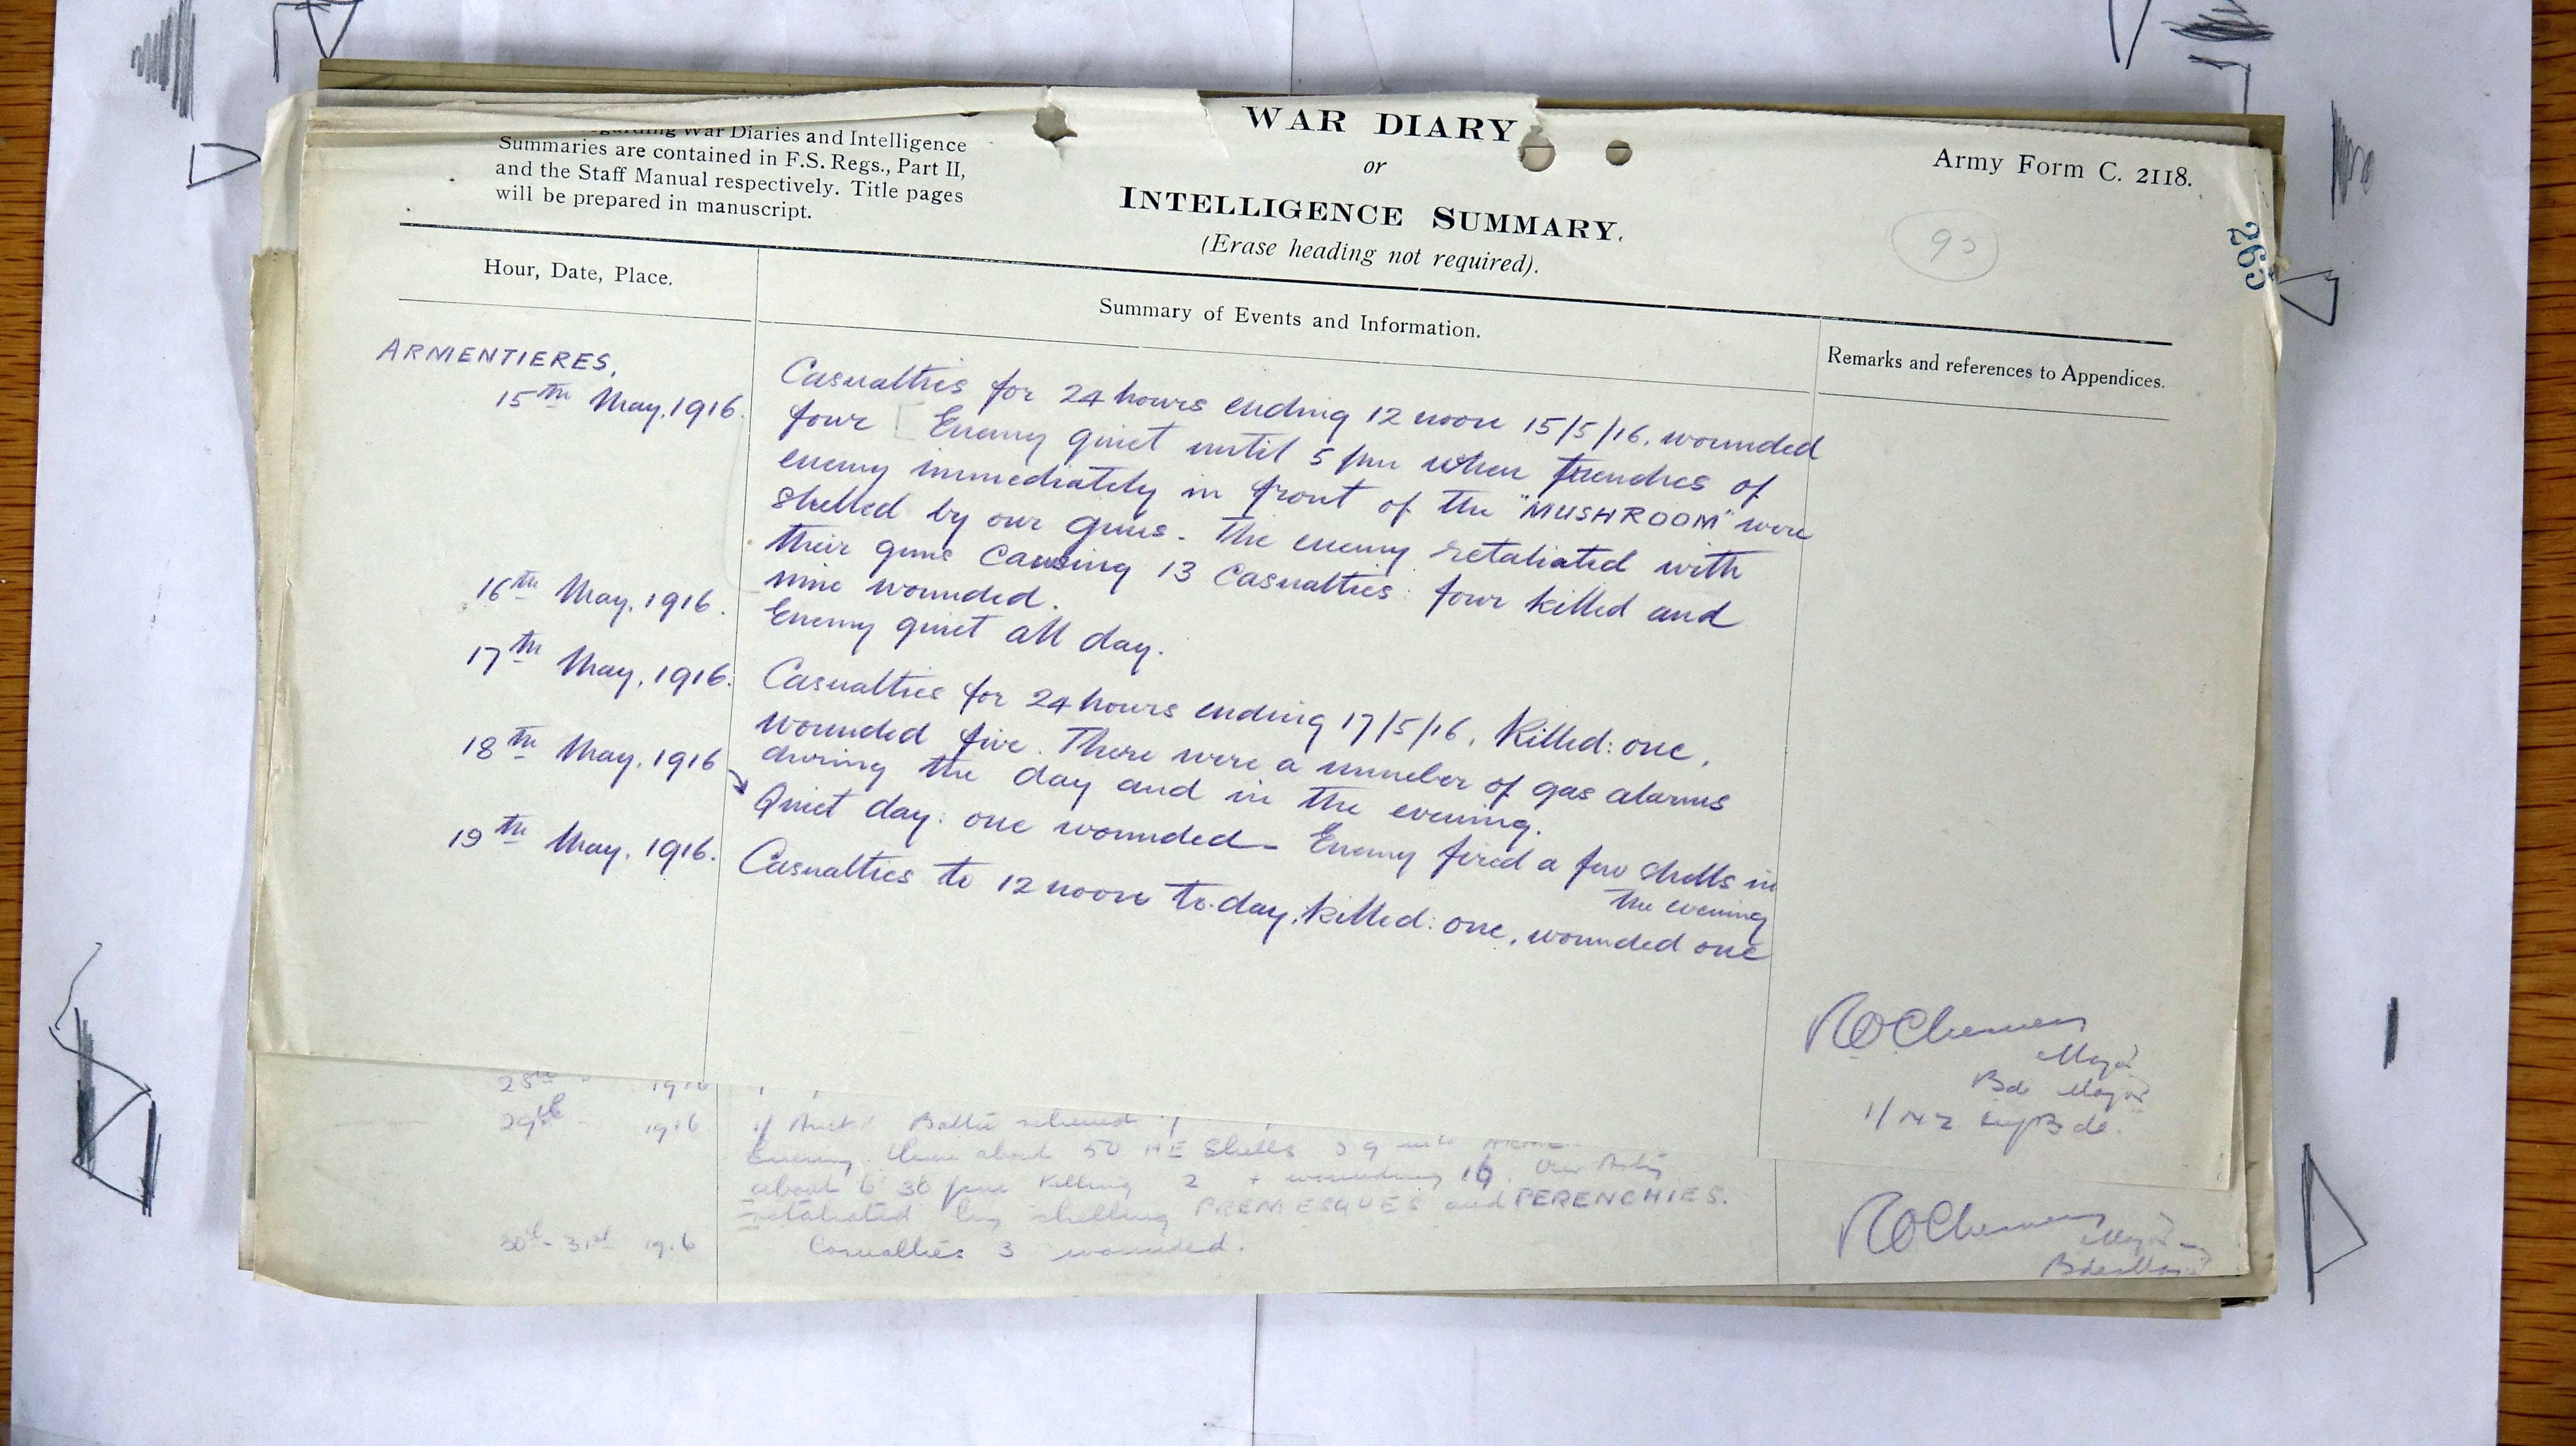 regarding War Diaries and Intelligence
Summaries are contained in F.S. Regs., Part II,
and the Staff Manual respectively. Title pages
will be prepared in manuscript.
WAR DIARY
or
INTELLIGENCE SUMMARY.
(Erase heading not required).
Army Form C. 2118.
93
265
Hour, Date, Place.
Summary of Events and Information.
Remarks and references to Appendices.
ARMENTIERES.
15th May, 1916.
Casualties for 24 hours ending 12 noon 15/5/16. wounded
four [ Enemy quiet until 5 pm when trenches of
enemy immediately in front of the "MUSHROOM" were
shelled by our guns. The enemy retaliated with
their guns causing 13 casualties: four killed and
nine wounded.
16th May, 1916.
Enemy quiet all day.
17th May, 1916.
Casualties for 24 hours ending 17/5/16. Killed: one,
wounded five. There were a number of gas alarms
during the day and in the evening.
18th May, 1916
Quiet day: one wounded - Enemy fired a few shells in
the evening
19th May, 1916.
Casualties to 12 noon to-day, killed: one, wounded one
Major
Bde Major
1/NZ Bde.
28th 1916
29th 1916
Battn relieved
Enemy about 50 HE Shells
about 6 30 pm killing 2 + wounding 16. Our Arty
retaliated by shelling PREMESQUES and PERENCHIES.
30th - 31st 1916
Casualties 3 wounded.
Major